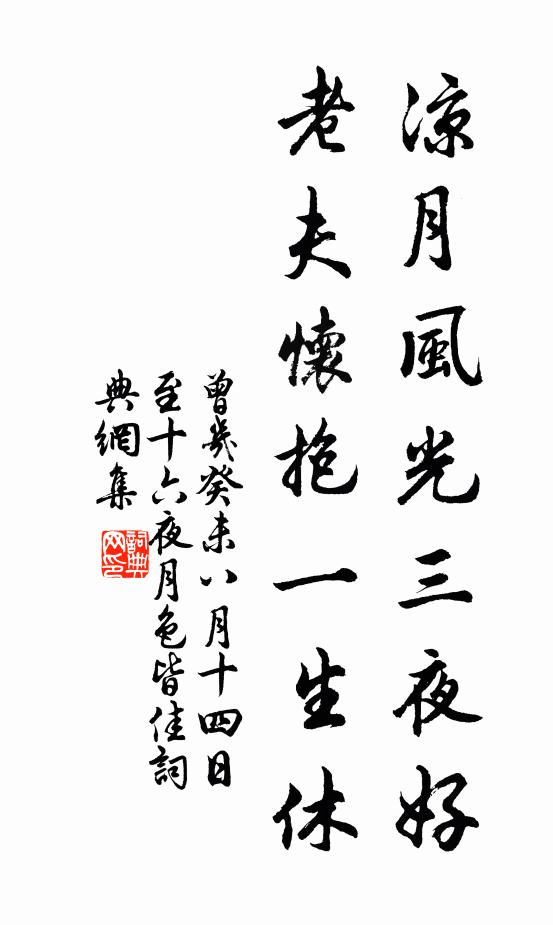 凉月風光三夜好
老夫懷抱一生休
曾幾癸未八月十四日
至十六夜月色皆佳詞
典網集
詞典
网印